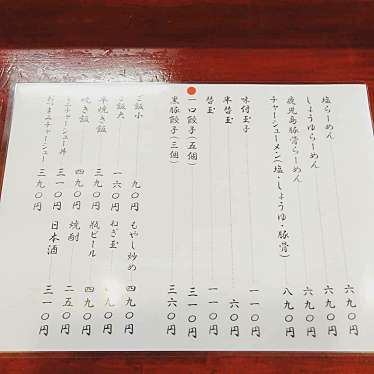 塩らーめん 六九〇円
しょうゆらーめん 六九〇円
鹿児島豚骨らーめん 六九〇円
チャーシューメン(塩・しょうゆ・豚骨) 八九〇円
味付玉子 一一〇円
半替玉 六〇円
替玉 一一〇円
一口餃子(五個) 三一〇円
黒豚餃子(三個) 三六〇円
ご飯小 九〇円 もやし炒め 四九〇円
ご飯大 一六〇円 ねぎ玉 九〇円
半焼き飯 三九〇円 瓶ビール 四九〇円
焼き飯 四九〇円 焼酎 二五〇円
ミニチャーシュー丼 三一〇円 日本酒 三一〇円
おつまみチャーシュー 三九〇円